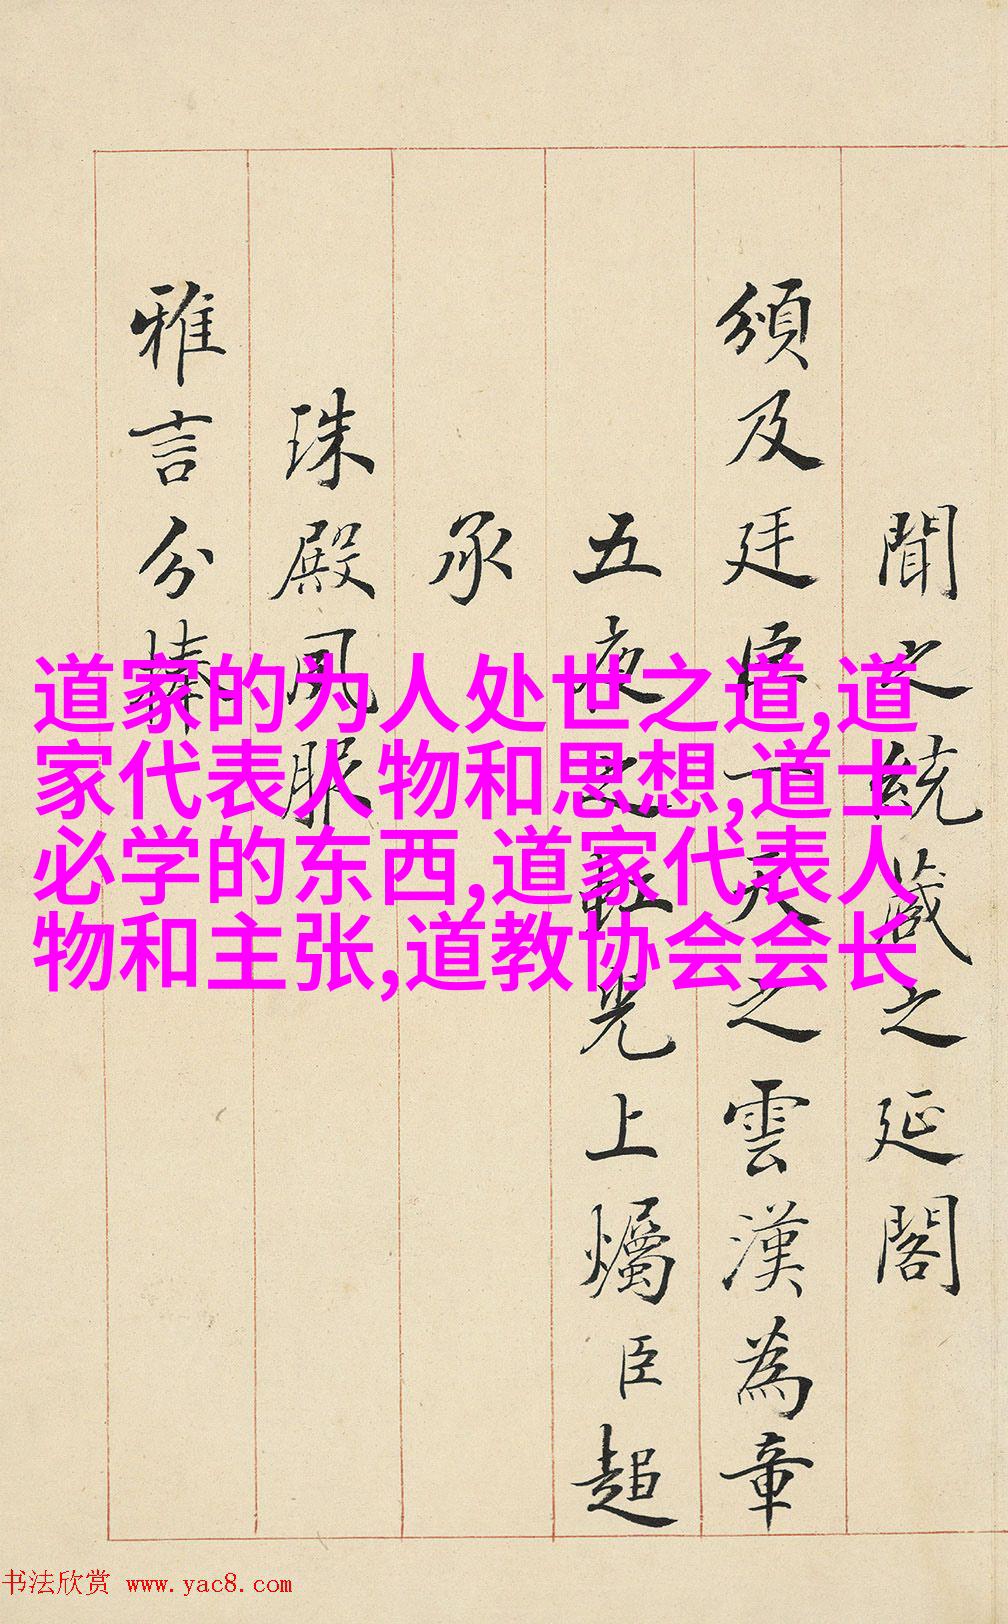 聞之統藏之延閣
頒及廷臣一天之雲漢為章
五夜之虹光上爥臣超
承
珠殿夙服
雅言分捧
道家的为人处世之道,道
家代表人物和思想,道士
必学的东西,道家代表人
物和主张,道教协会会长
书法欣赏 www.yac8.com